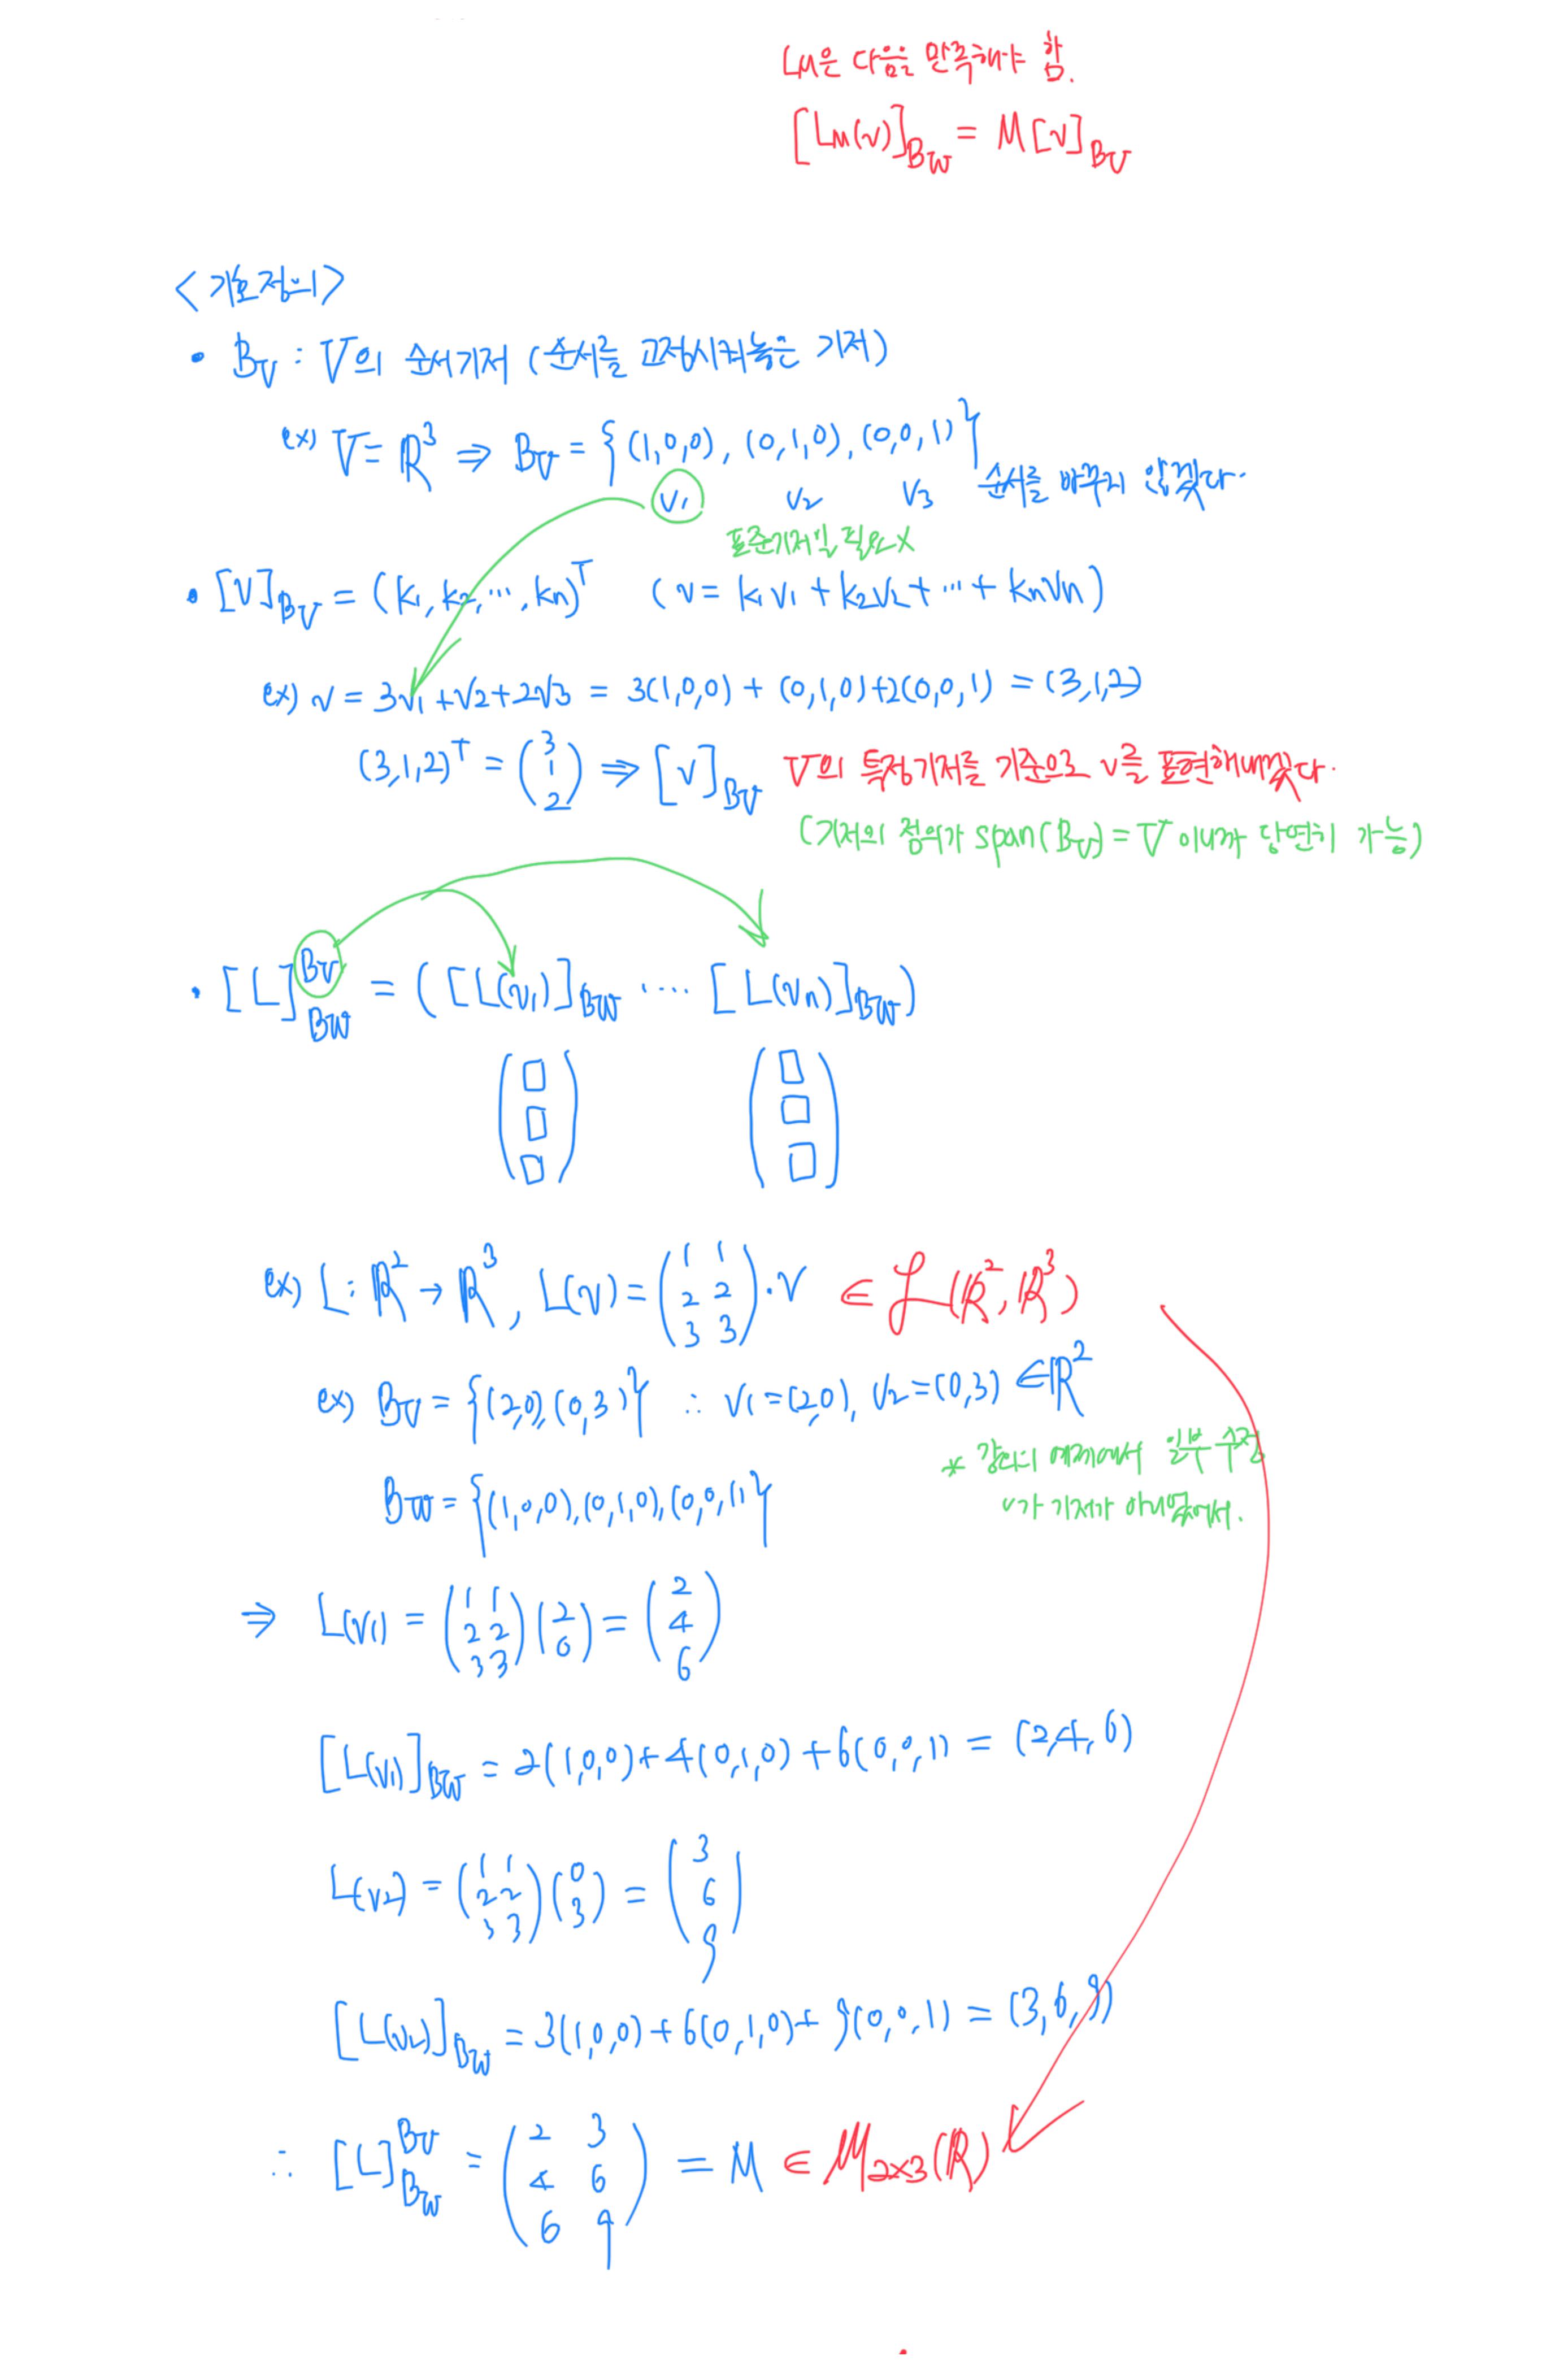 L_M은 다음을 만족해야 함.
[L_M(v)]_{B_W} = M[v]_{B_V}
<기호정의>
• B_V : V의 순서기저 (순서를 고정시켜놓은 기저)
ex) V = ℝ³ ⇒ B_V = {(1,0,0), (0,1,0), (0,0,1)}
v₁ v₂ v₃ 순서를 바꾸지 않겠다.
표준기저일 필요 X
• [v]_{B_V} = (k₁, k₂, ⋯, kₙ)ᵀ (v = k₁v₁ + k₂v₂ + ⋯ + kₙvₙ)
ex) v = 3v₁ + v₂ + 2v₃ = 3(1,0,0) + (0,1,0) + 2(0,0,1) = (3,1,2)
(3,1,2)ᵀ = (3 1 2) ⇒ [v]_{B_V} V의 특정기저를 기준으로 v를 표현해내겠다.
(기저의 정의가 span(B_V) = V 이니까 당연히 가능)
• [L]^{B_V}_{B_W} = ([L(v₁)]_{B_W} ⋯ [L(vₙ)]_{B_W})
(□ □ □) (□ □ □)
ex) L : ℝ² → ℝ³, L(v) = (1 1 / 2 2 / 3 3) · v ∈ ℒ(ℝ², ℝ³)
ex) B_V = {(2,0), (0,3)} ∴ v₁ = (2,0), v₂ = (0,3) ∈ ℝ²
* 강의 예제에서 일부 수정
v가 기저가 아니였어서.
B_W = {(1,0,0), (0,1,0), (0,0,1)}
⇒ L(v₁) = (1 1 / 2 2 / 3 3)(2 / 0) = (2 / 4 / 6)
[L(v₁)]_{B_W} = 2(1,0,0) + 4(0,1,0) + 6(0,0,1) = (2,4,6)
L(v₂) = (1 1 / 2 2 / 3 3)(0 / 3) = (3 / 6 / 9)
[L(v₂)]_{B_W} = 3(1,0,0) + 6(0,1,0) + 9(0,0,1) = (3,6,9)
∴ [L]^{B_V}_{B_W} = (2 3 / 4 6 / 6 9) = M ∈ M_{2×3}(ℝ)